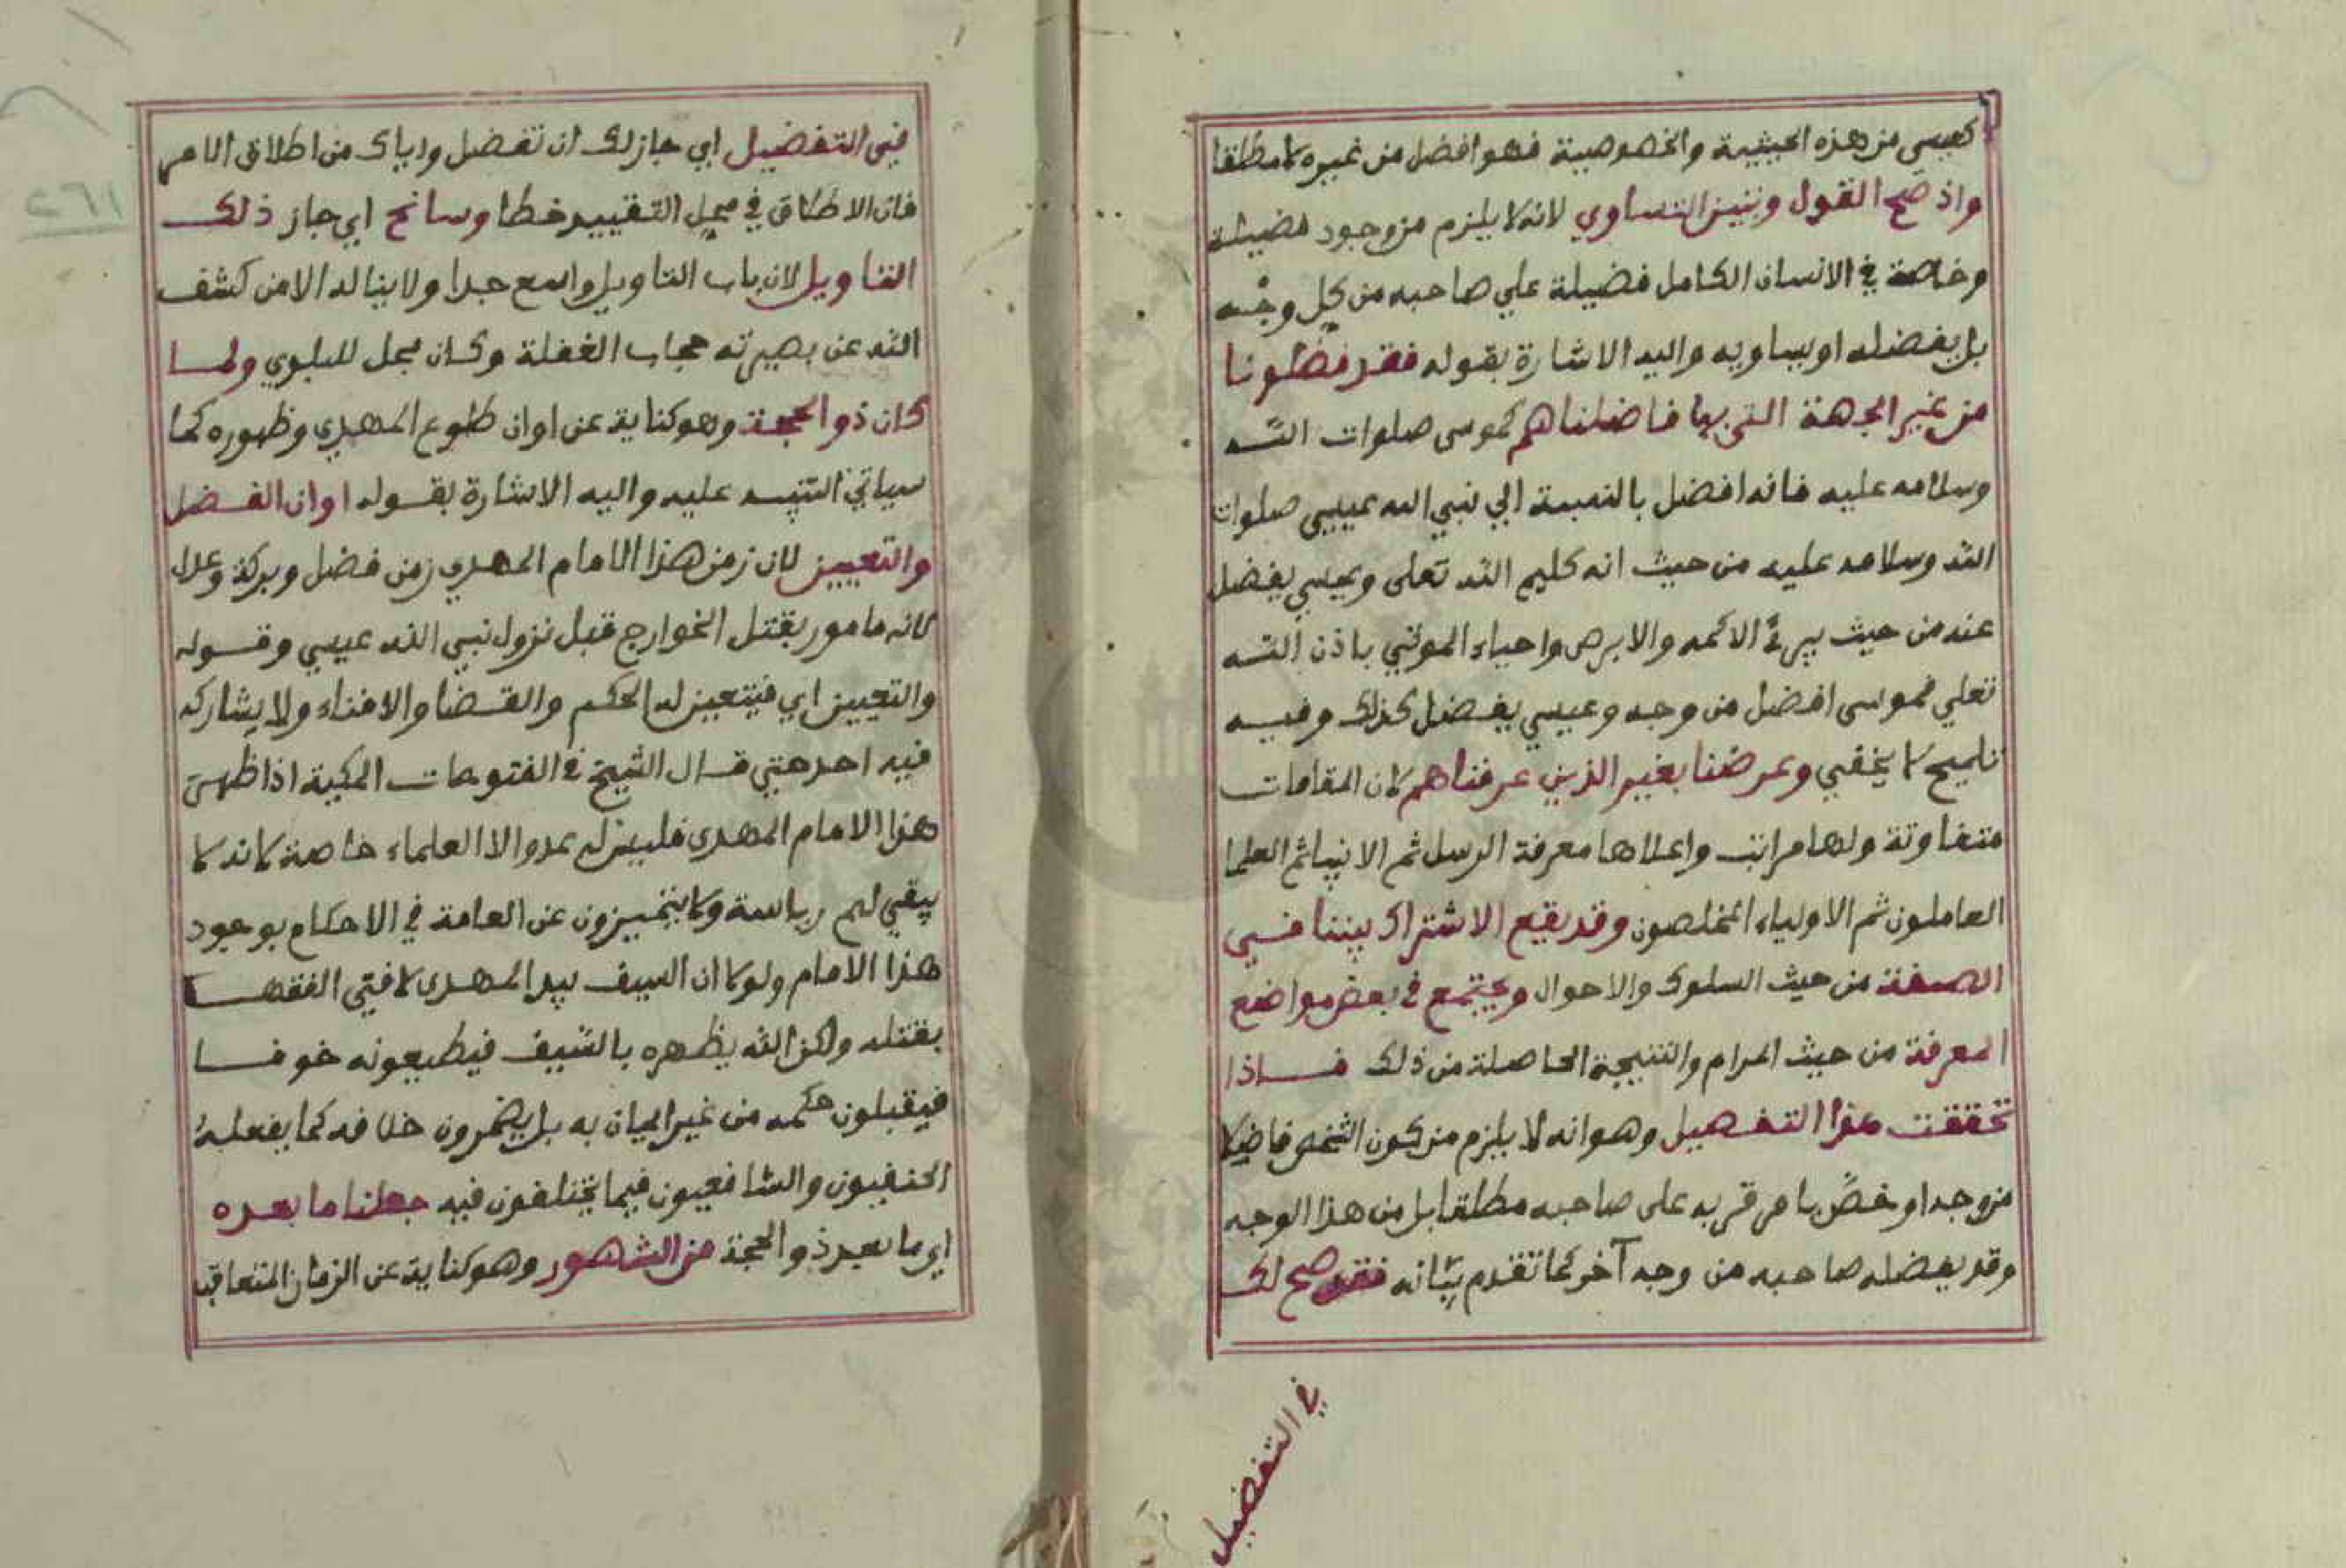 كعيسى من هذه الحيثية والخصوصية فهو افضل من غيره لا مطلقا
واذ صح القول وتبين التساوي لانه لا يلزم من وجود فضيلة
وخاصة في الانسان الكامل فضيلة علي صاحبه من كل وجه
بل يفضله او يساويه واليه الاشارة بقوله فقد فضلونا
من غير الجهة التي بها فاضلناهم كموسى صلوات الله
وسلامه عليه فانه افضل بالنسبة الي نبي الله عيسى صلوات
الله وسلامه عليه من حيث انه كليم الله تعلى وعيسى يفضل
عنه من حيث يبرئ الاكمه والابرص واحياء الموتي باذن الله
تعلي فموسى افضل من وجه وعيسي يفضل كذلك وفيه
تلميح لا يخفي وعرضنا بغير الذين عرفناهم لان المقامات
متفاوتة ولها مراتب واعلاها معرفة الرسل ثم الانبيا ثم العلما
العاملون ثم الاولياء المخلصون وقد يقع الاشتراك بيننا في
الصفة من حيث السلوك والاحوال ويجتمع في بعض مواضع
المعرفة من حيث المرام والنتيجة الحاصلة من ذلك فاذا
تحققت هذا التفصيل وهو انه لا يلزم من كون الشخص فاضلا
من وجه او خص بامر قربه على صاحبه مطلقا بل من هذا الوجه
وقد يفضله صاحبه من وجه آخر كما تقدم بيانه فقد صح لك
في التفضيل
في التفضيل اي جاز لك ان تفضل واياك من اطلاق الامر
فان الاطلاق في محل التقييد خطا وسانح اي جاز ذلك
التاويل لان باب التاويل واسع جدا ولا يناله الا من كشف
الله عن بصيرته حجاب الغفلة وكان محل للبلوي ولما
كان ذو الحجة وهو كناية عن اوان طلوع المهدي وظهوره كما
سياتي التنبيه عليه واليه الاشارة بقوله اوان الفضل
والتعيين لان زمن هذا الامام المهدي زمن فضل وبركة وعدل
لانه مامور بقتل الخوارج قبل نزول نبي الله عيسي وقوله
والتعيين اي فيتعين له الحكم والقضا والافتاء ولا يشاركه
فيه احد حتي قال الشيخ في الفتوحات المكية اذا ظهر
هذا الامام المهدى فليس له عدو الا العلماء خاصة لانه لا
يبقي لهم رياسة ولا يتميزون عن العامة في الاحكام بوجود
هذا الامام ولولا ان السيف بيد المهدى لافتى الفقها
بقتله ولكن الله يظهره بالسيف فيطيعونه خوفا
فيقبلون حكمه من غير ايمان به بل يضمرون خلافه كما يفعله
الحنفيون والشافعيون فيما يختلفون فيه جعلنا ما بعده
اي ما بعد ذو الحجة من الشهور وهو كناية عن الزمان المتعاقب